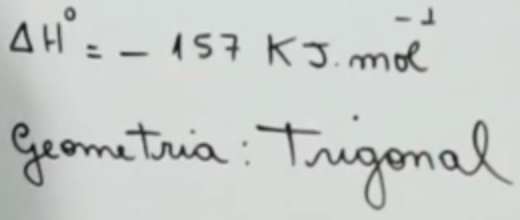 ΔH° = - 157 KJ.mol⁻¹
Geometria: Trigonal